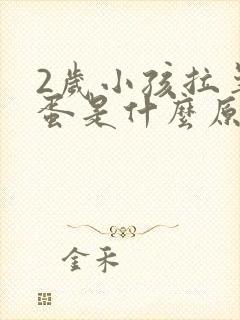 2歲小孩拉
蛋是什麼原
金禾